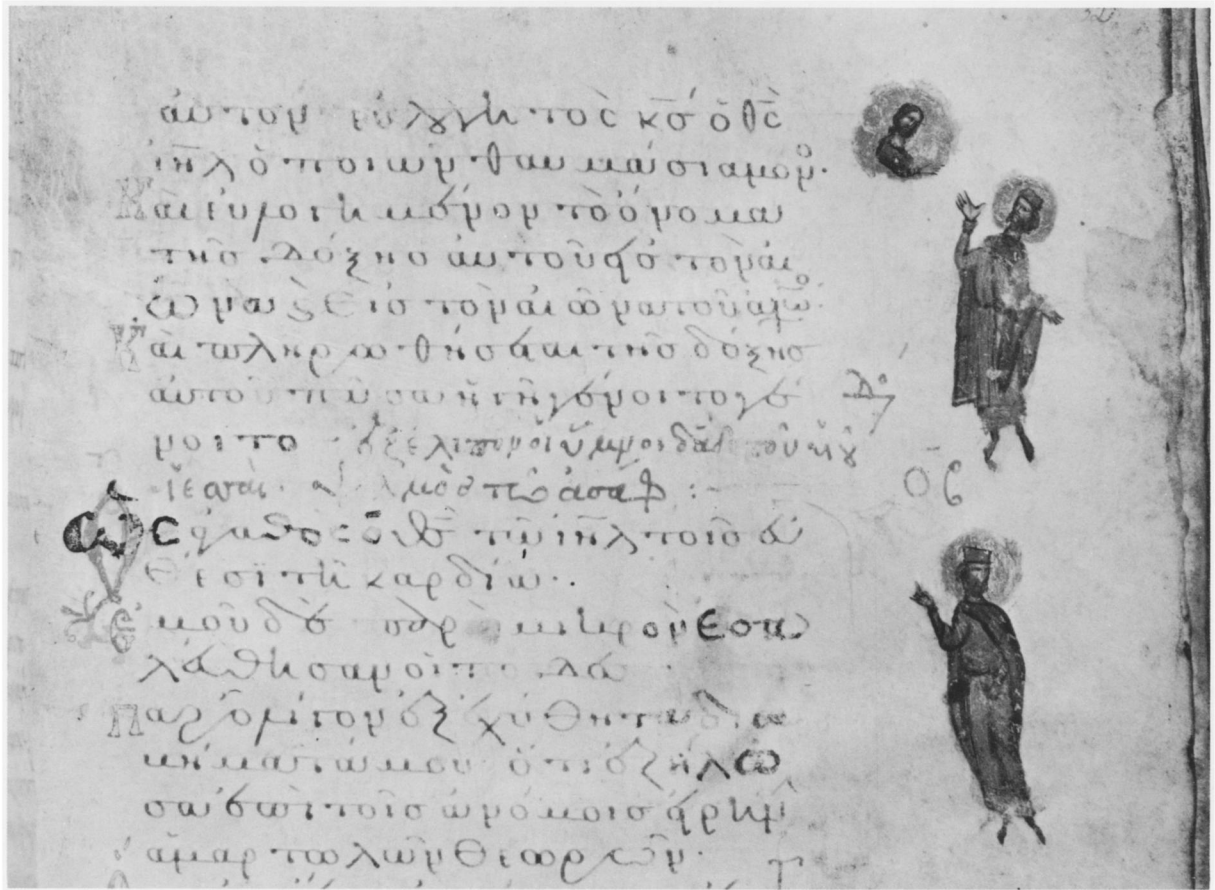 αυτον· ευλογητὸς κ̅σ̅ ὁ θ̅σ̅
ι̅η̅λ̅ ὁ ποιῶν θαυμάσια μονο·
Καὶ ευλογημένον τὸ ὄνομα
τῆσ δόξησ αυτοῦ εἰσ τὸν αἰ
ῶνα ϗ εἰσ τὸν αἰῶνα τοῦ αἰῶνο·
Καὶ πληρωθήσεται τῆσ δόξησ
αυτοῦ πᾶσα ἡ γῆ γένοιτο γέ
νοιτο· ἐξέλιπον οἱ ὕμνοι δα̅δ̅ τοῦ υἱοῦ
ϊεσσαί· ψαλμὸσ τῶ ἀσάφ :
ΟΒ
Ὡς ἀγαθὸς ὁ θ̅σ̅ τῶ ι̅η̅λ̅ τοῖσ εὐ
θέσι τῆ καρδία·
Ἐμοῦ δὲ παρὰ μικρὸν ἐσα
λεύθησαν οἱ πόδεσ
Παρ' ὀλίγον ἐξεχύθη τὰ δια
βήματά μου· ὅτι ἐζήλω
σα ἐπὶ τοῖσ ἀνόμοισ εἰρήνη
ἁμαρτωλῶν θεωρῶν·